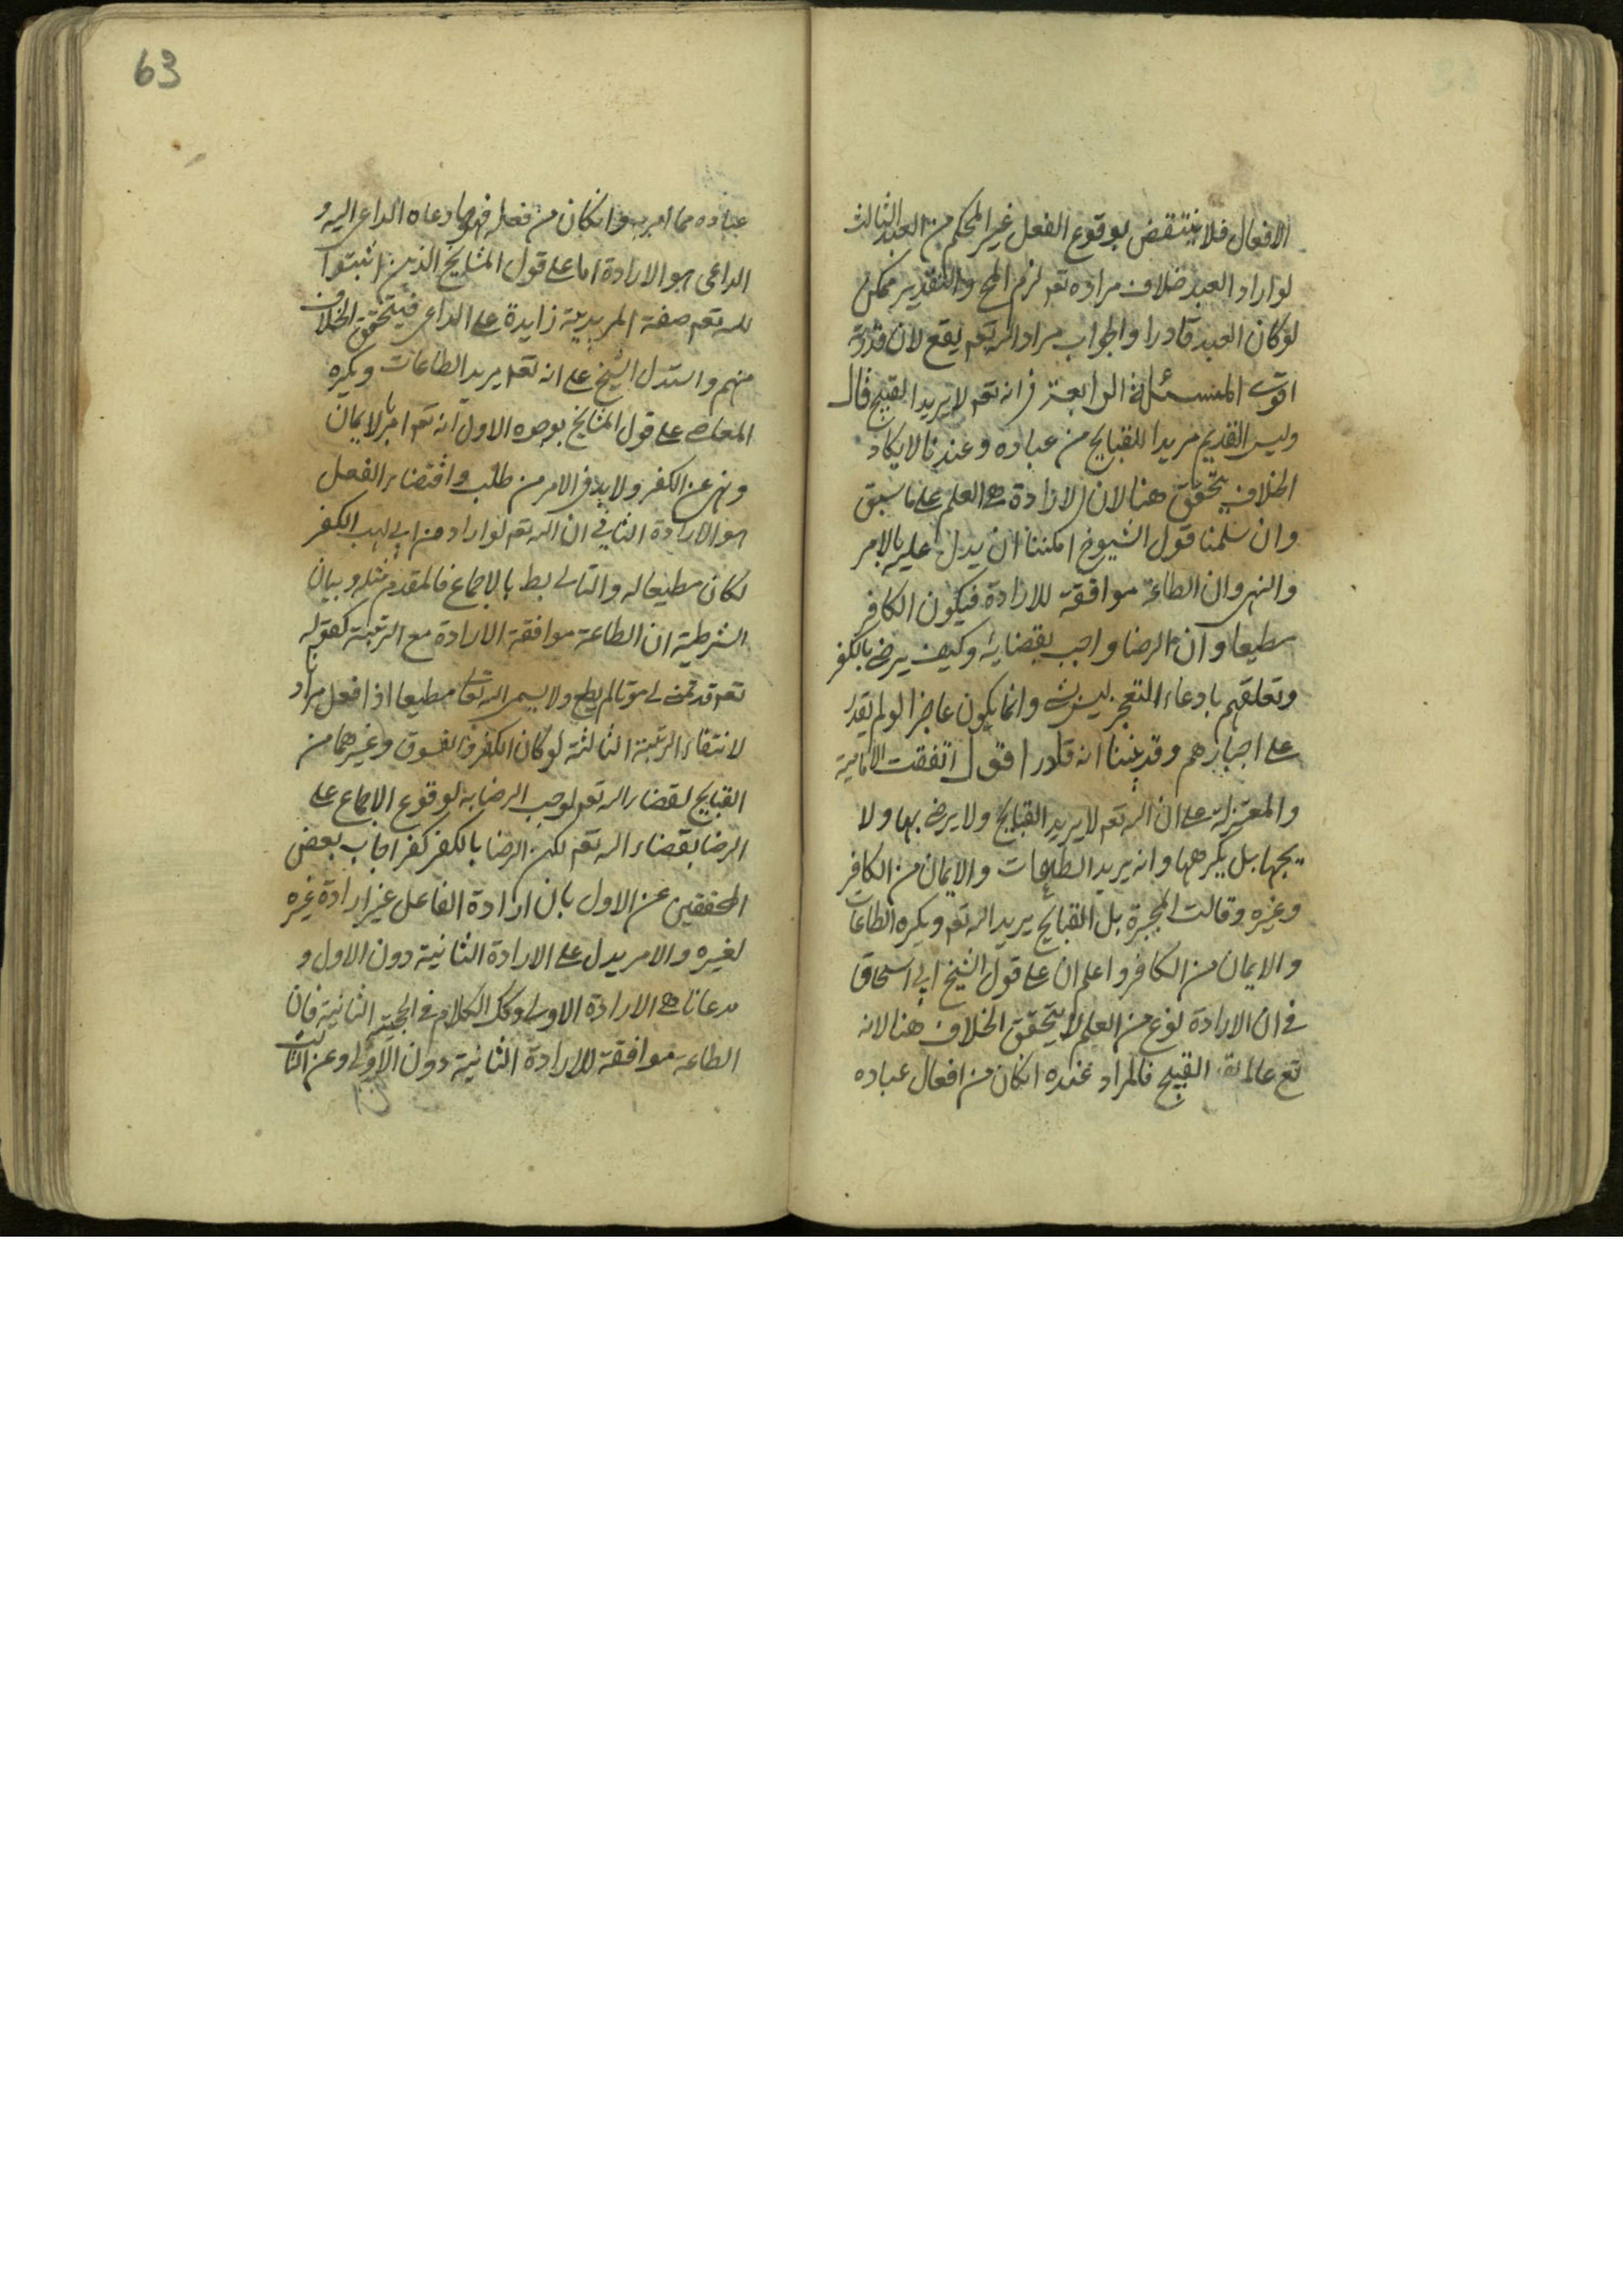 الافعال فلا ينتقض بوقوع الفعل غير المحكم من العبد الثالث
لو اراد العبد خلاف مراده تعه لزم المح والتقدير ممكن
لو كان العبد قادرا والجواب مراد الله تعه يقع لان قدرته
اقوى المسئلة الرابعة في انه تعه لا يريد القبيح قال
وليس القديم مريدا للقبايح من عباده وعندنا لا يكاد
الخلاف يتحقق هنا لان الارادة هي العلم على ما سبق
وان سلمنا قول الشيوخ امكننا ان يدل عليه بالامر
والنهى وان الطاعة موافقة للارادة فيكون الكافر
مطيعا وان الرضا واجب بقضايه وكيف يرضى بالكفر
وتعلقهم بادعاء التعجيز ليس بشئ وانما يكون عاجزا لو لم يقدر
على اجبارهم وقد بينا انه قادر اقول اتفقت الامامية
والمعتزلة على ان الله تعه لا يريد القبايح ولا يرضى بها ولا
يحبها بل يكرهها وانه يريد الطاعات والايمان من الكافر
وغيره وقالت المجبرة بل القبايح يريد الله تعه ويكره الطاعات
والايمان من الكافر واعلم ان على قول الشيخ ابى اسحاق
في ان الارادة نوع من العلم لا يتحقق الخلاف هنا لانه
تع عالم القبيح فالمراد عنده انكان من افعال عباده
63
عباده مما امر به وانكان من فعله فهو ما دعاه الداعى اليه و
الداعى هو الارادة اما على قول المشايخ الذين اثبتوا
لله تعه صفة المريدية زايدة على الداعى فيتحقق الخلاف
منهم واستدل الشيخ على انه تعه يريد الطاعات ويكره
المعاصى على قول المشايخ بوجوه الاول انه تعه امر بالايمان
ونهى عن الكفر ولا بد في الامر من طلب واقتضاء الفعل
هو الارادة الثاني ان الله تعه لو اراد من ابى لهب الكفر
لكان مطيعا له والتالى بط بالاجماع فالمقدم مثله وبيان
الشرطية ان الطاعة موافقة الارادة مع الرتبة كقوله
تمنى لى موتا لم يطع ولا يسمى الله تعالى مطيعا اذا فعل مرادنا
لانتفاء الرتبة الثالثة لو كان الكفر والفسوق وغيرهما من
القبايح بقضاء الله تعه لوجب الرضا به لوقوع الاجماع على
الرضا بقضاء الله تعه لكن الرضا بالكفر كفر اجاب بعض
المحققين عن الاول بان ارادة الفاعل غير ارادة غيره
لغيره والامر يدل على الارادة الثانية دون الاول و
مدعانا هى الارادة الاولى وكك الكلام في الحجة الثانية فان
الطاعة موافقة للارادة الثانية دون الاولى وعن الثالث